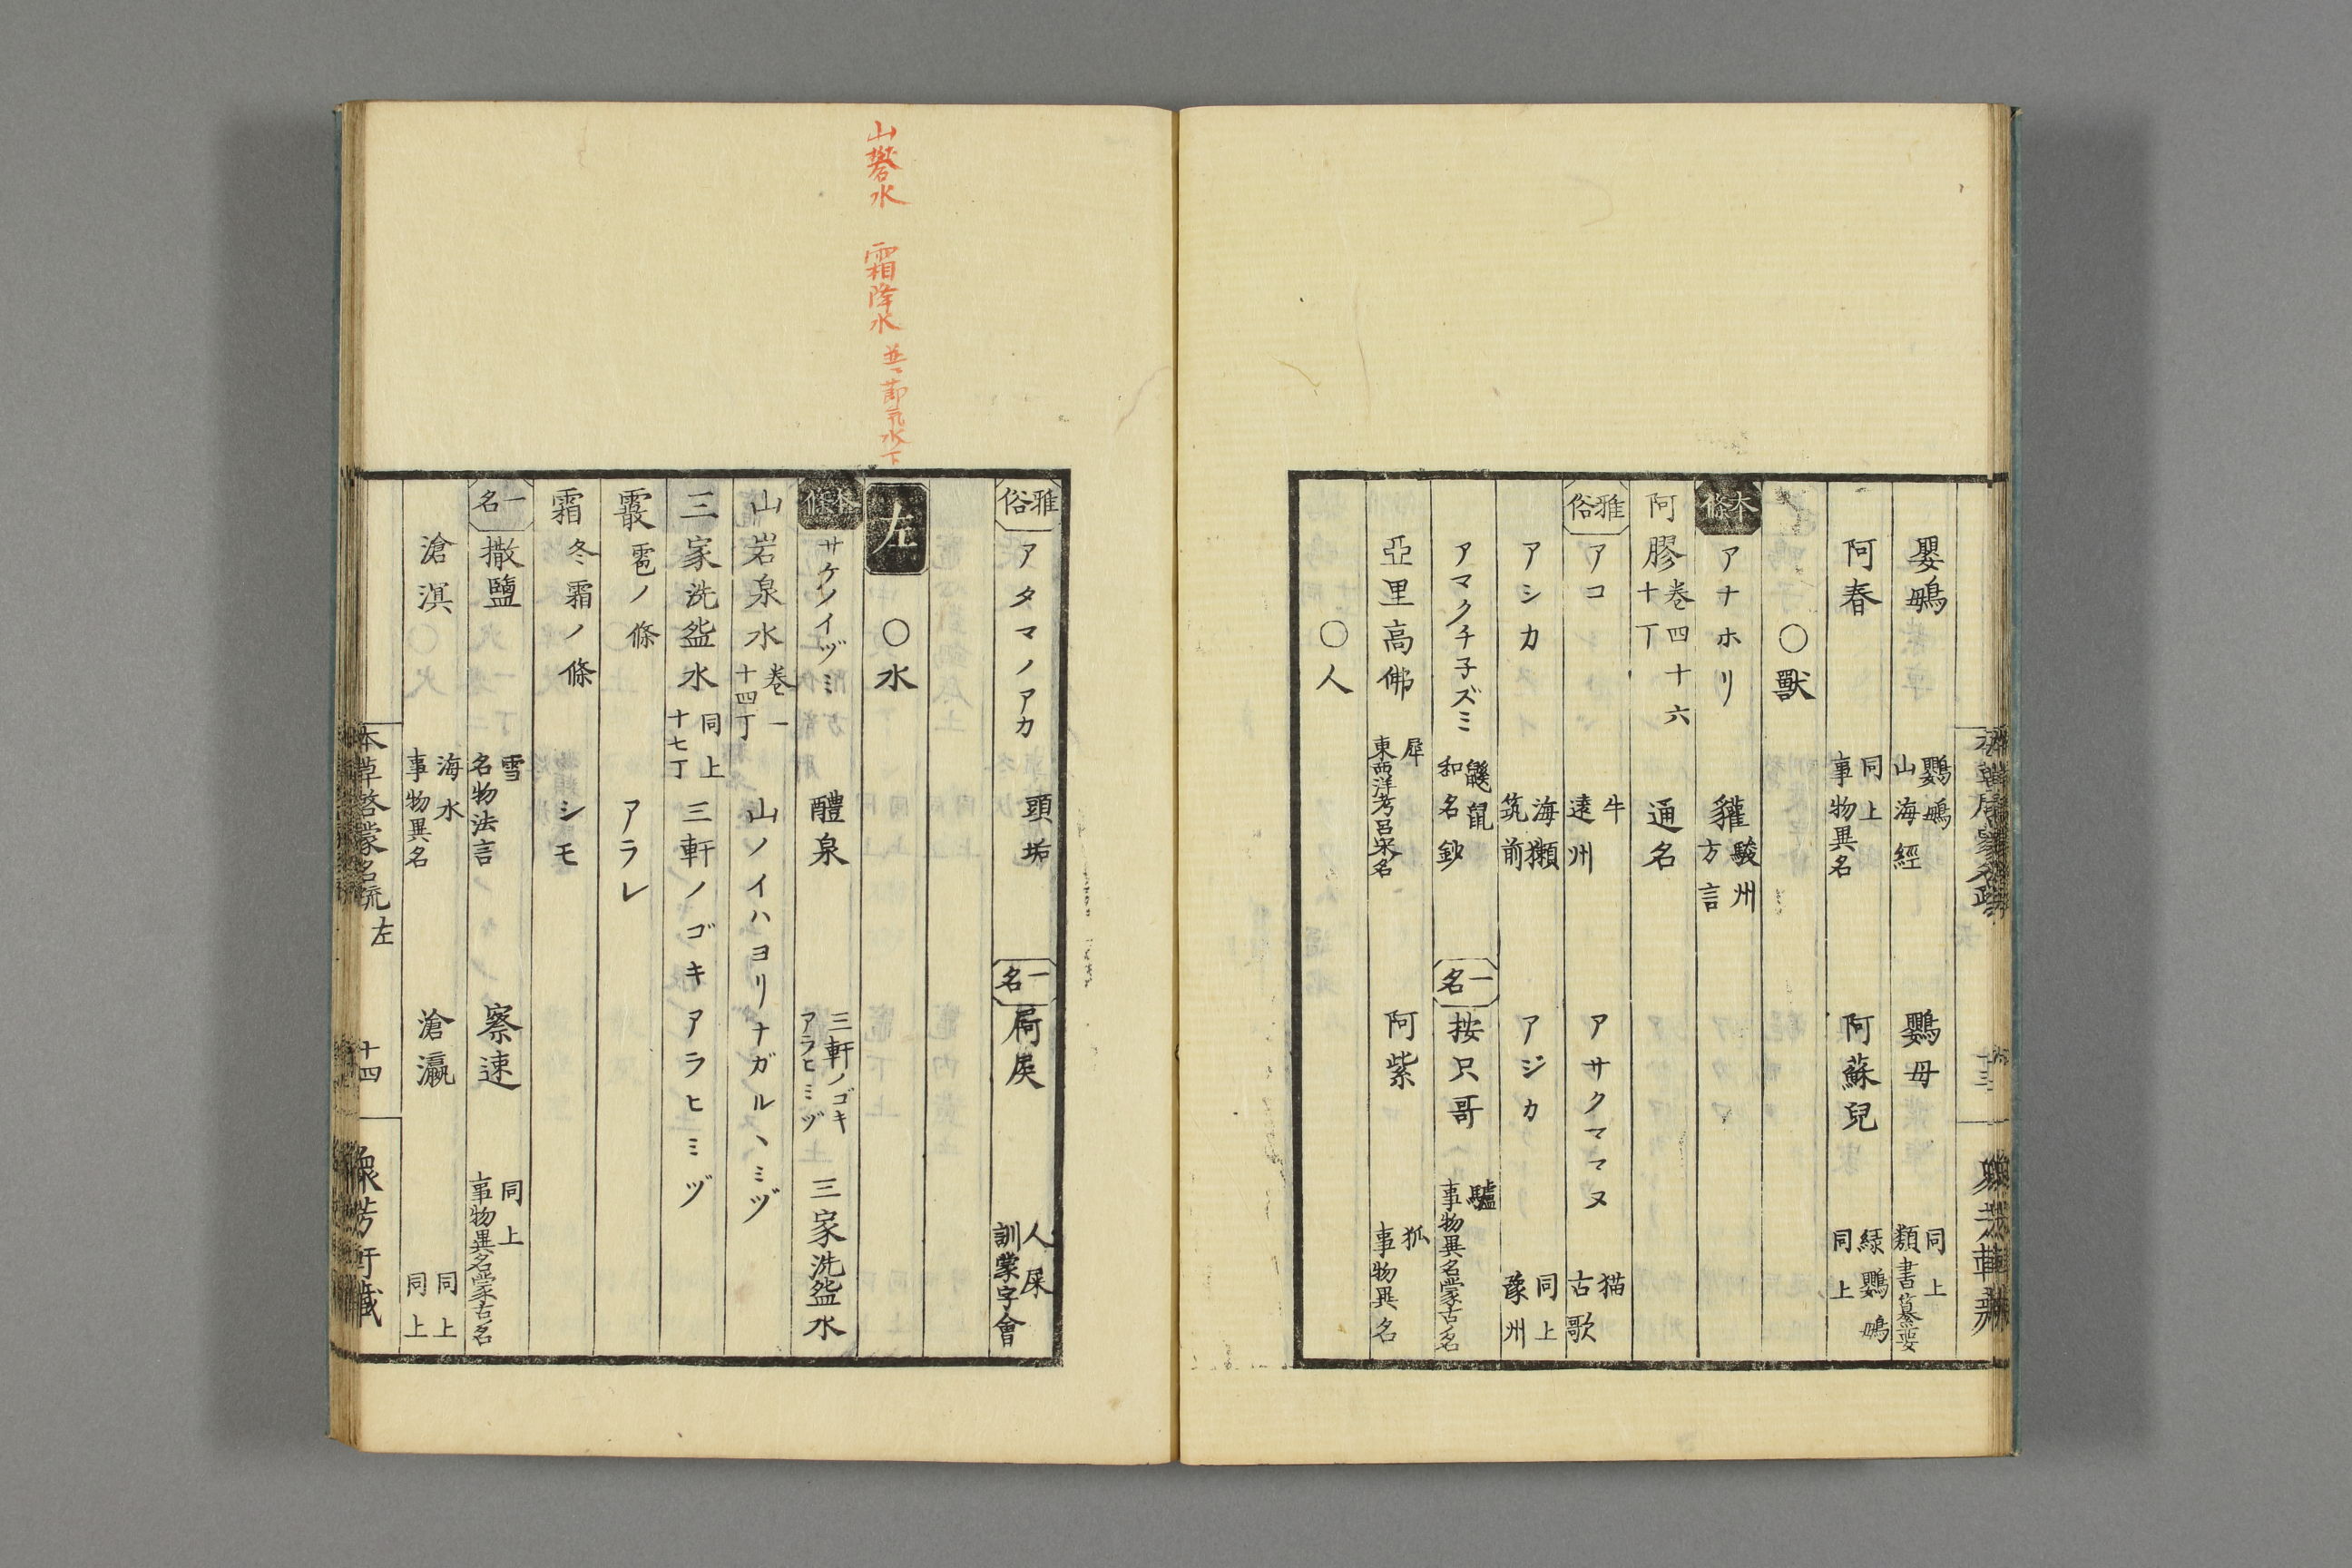 鸚䳇 鸚鴟 山海經 鸚母 同上 類書纂要
阿春 同上 事物異名 阿蘇兒 綠鸚鴟 同上
〇獸
本條 アナホリ 貛 駿州方言
阿膠 卷四十六 十丁 通名
雅俗 アコ 牛 遠州 アサクママヌ 猫 古歌
アシカ 海獺 筑前 アジカ 同上 豫州
アマクチ子ズミ 鼷鼠 和名鈔 一名 按只哥 驢 事物異名蒙古名
亞里高佛 犀 東西洋考呂宋名 阿紫 狐 事物異名
〇人
雅俗 アタマノアカ 頭垢 一名 屙戾 人屎 訓蒙字會
左 〇水
山礬水 霜降水 並ニ節氣水下
本條 サケノイヅミ 醴泉 三軒ノゴキアラヒミヅ 三家洗盌水
山岩泉水 卷一 十四丁 山ノイハヨリナガルヽミヅ
三家洗盌水 同上 十七丁 三軒ノゴキアラヒミヅ
霰 雹ノ條 アラレ
霜 冬霜ノ條 シモ
一名 撒鹽 雪 名物法言 察速 同上 事物異名蒙古名
滄溟 海水 事物異名 滄瀛 同上 同上
本草啓蒙名疏 左 十四